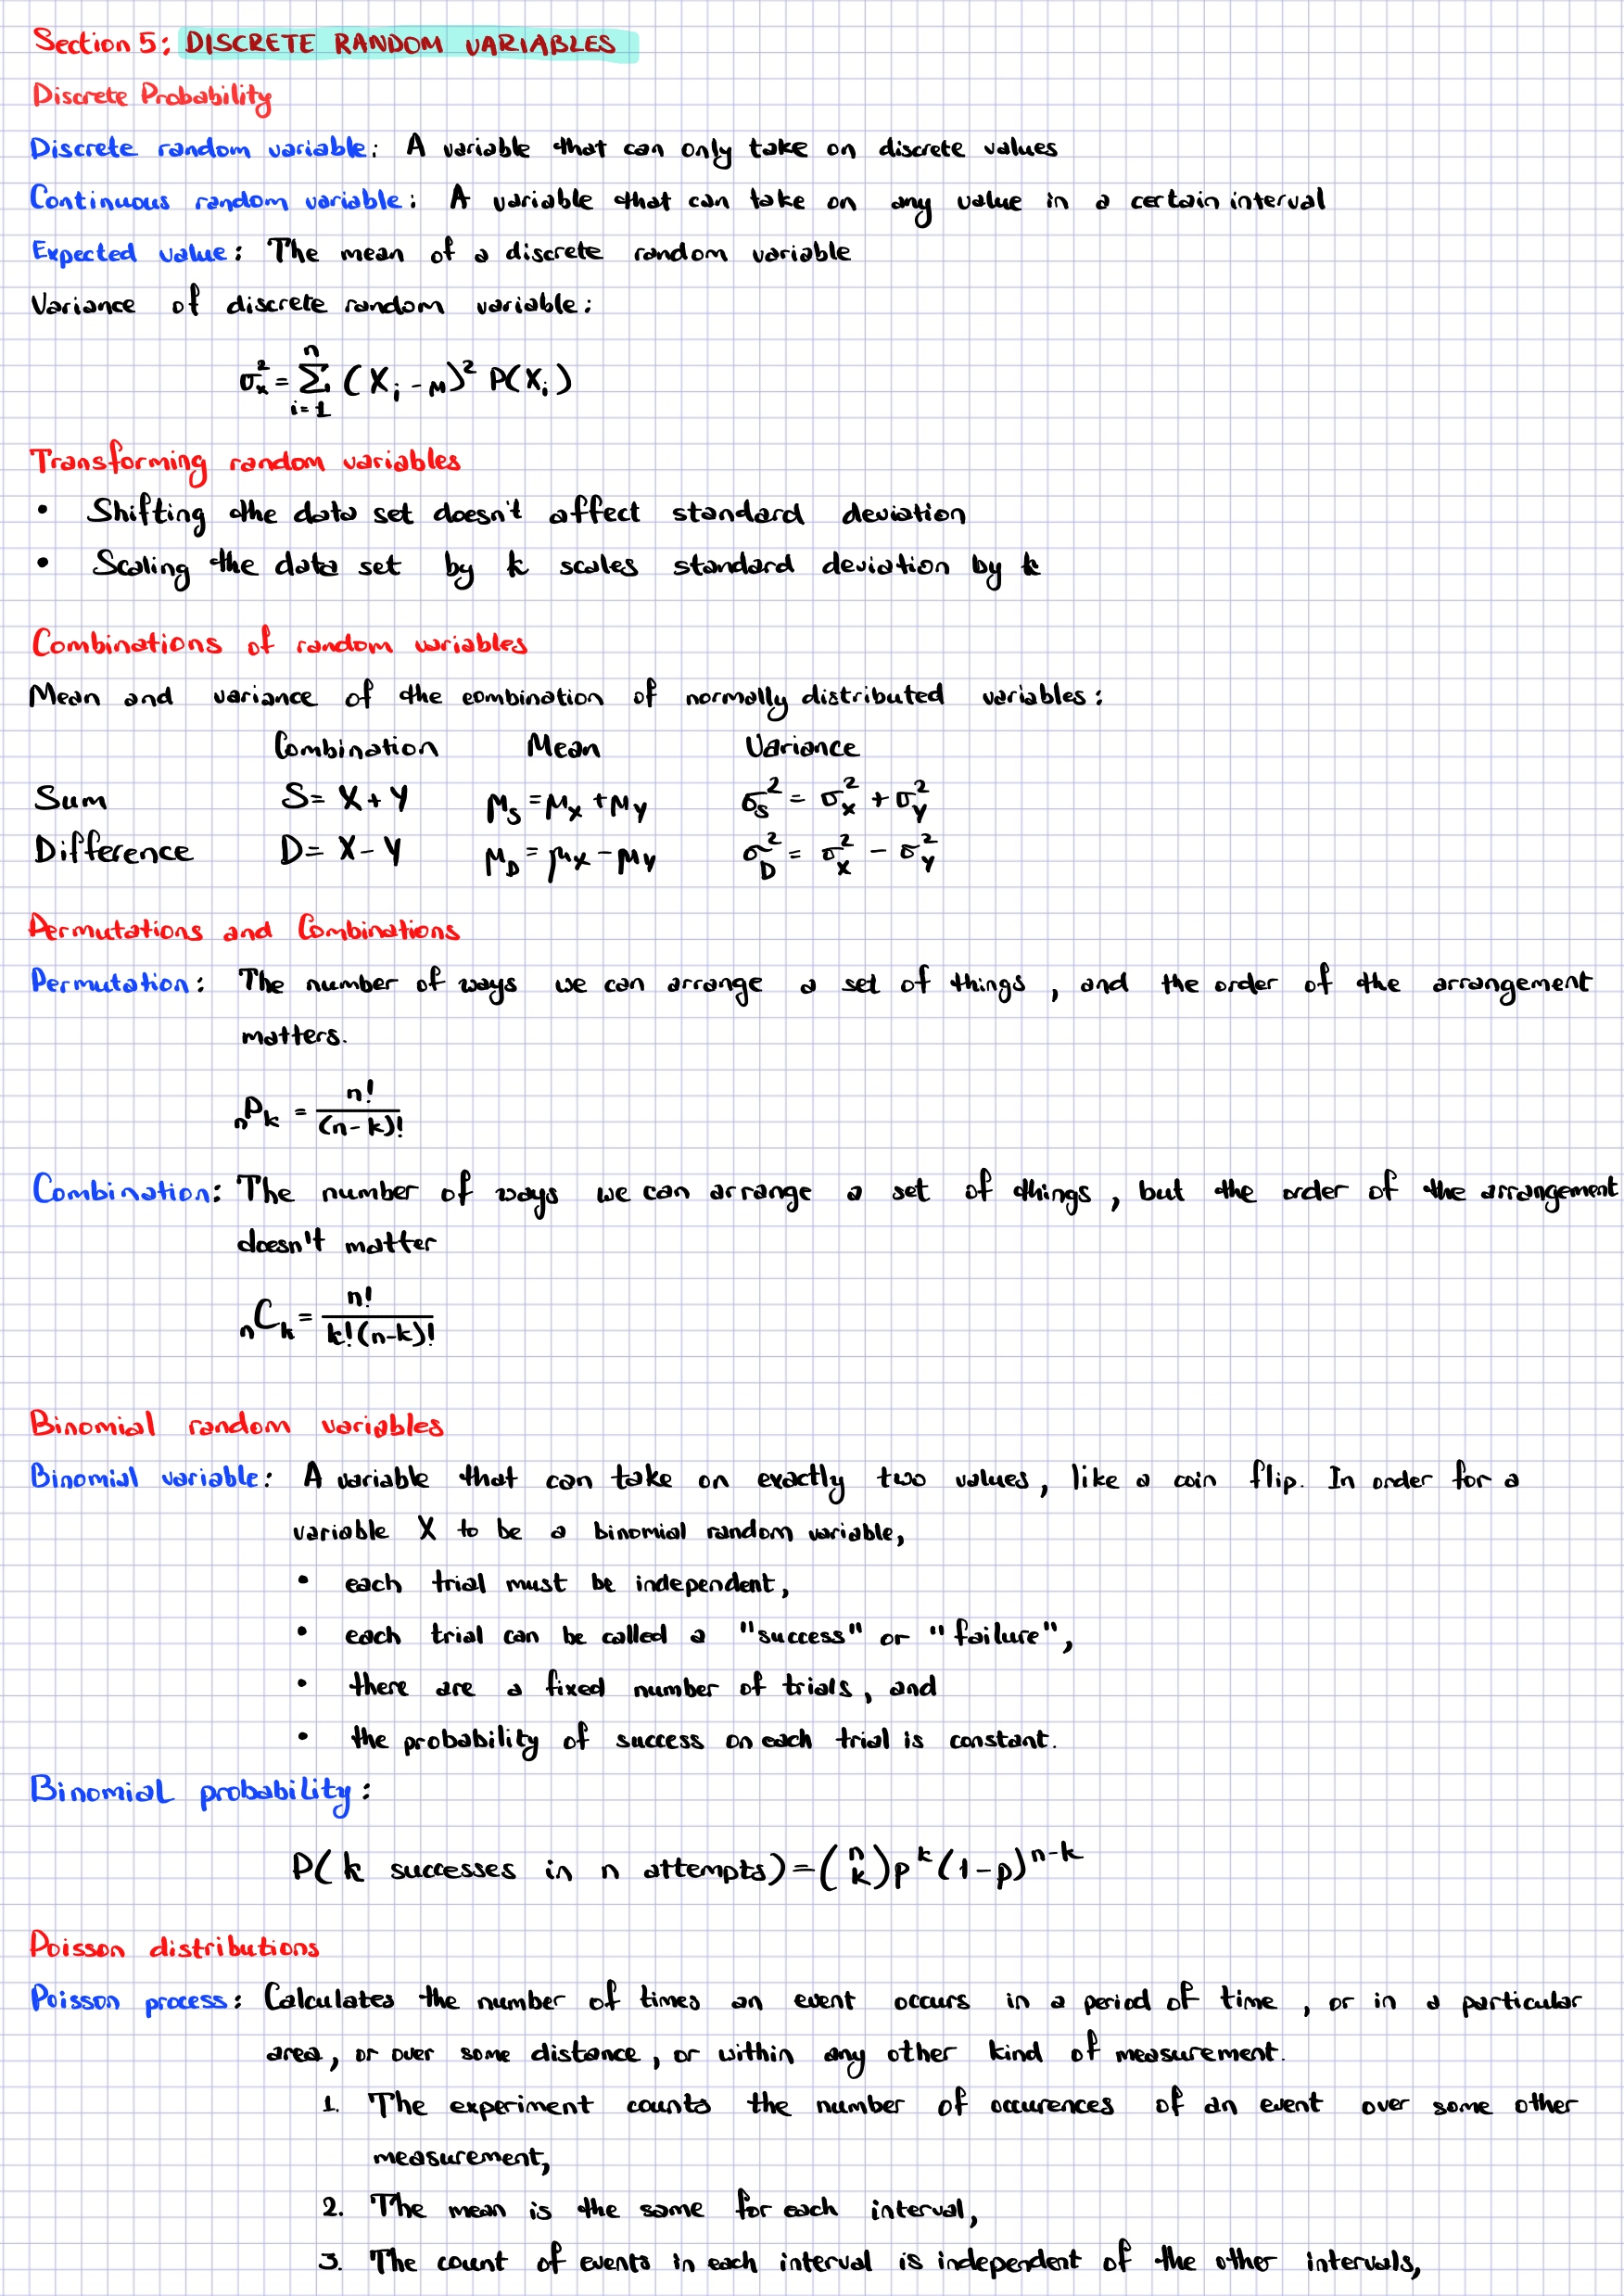 Section 5: DISCRETE RANDOM VARIABLES
Discrete Probability
Discrete random variable: A variable that can only take on discrete values
Continuous random variable: A variable that can take on any value in a certain interval
Expected value: The mean of a discrete random variable
Variance of discrete random variable:
σₓ² = Σⁿᵢ₌₁ (Xᵢ - μ)² P(Xᵢ)
Transforming random variables
• Shifting the data set doesn't affect standard deviation
• Scaling the data set by k scales standard deviation by k
Combinations of random variables
Mean and variance of the combination of normally distributed variables:
Combination Mean Variance
Sum S = X + Y μ_S = μ_X + μ_Y σ_S² = σ_X² + σ_Y²
Difference D = X - Y μ_D = μ_X - μ_Y σ_D² = σ_X² - σ_Y²
Permutations and Combinations
Permutation: The number of ways we can arrange a set of things, and the order of the arrangement
matters.
ₙPₖ = n! / (n-k)!
Combination: The number of ways we can arrange a set of things, but the order of the arrangement
doesn't matter
ₙCₖ = n! / k!(n-k)!
Binomial random variables
Binomial variable: A variable that can take on exactly two values, like a coin flip. In order for a
variable X to be a binomial random variable,
• each trial must be independent,
• each trial can be called a "success" or "failure",
• there are a fixed number of trials, and
• the probability of success on each trial is constant.
Binomial probability:
P(k successes in n attempts) = (n k) pᵏ (1-p)ⁿ⁻ᵏ
Poisson distributions
Poisson process: Calculates the number of times an event occurs in a period of time, or in a particular
area, or over some distance, or within any other kind of measurement.
1. The experiment counts the number of occurences of an event over some other
measurement,
2. The mean is the same for each interval,
3. The count of events in each interval is independent of the other intervals,